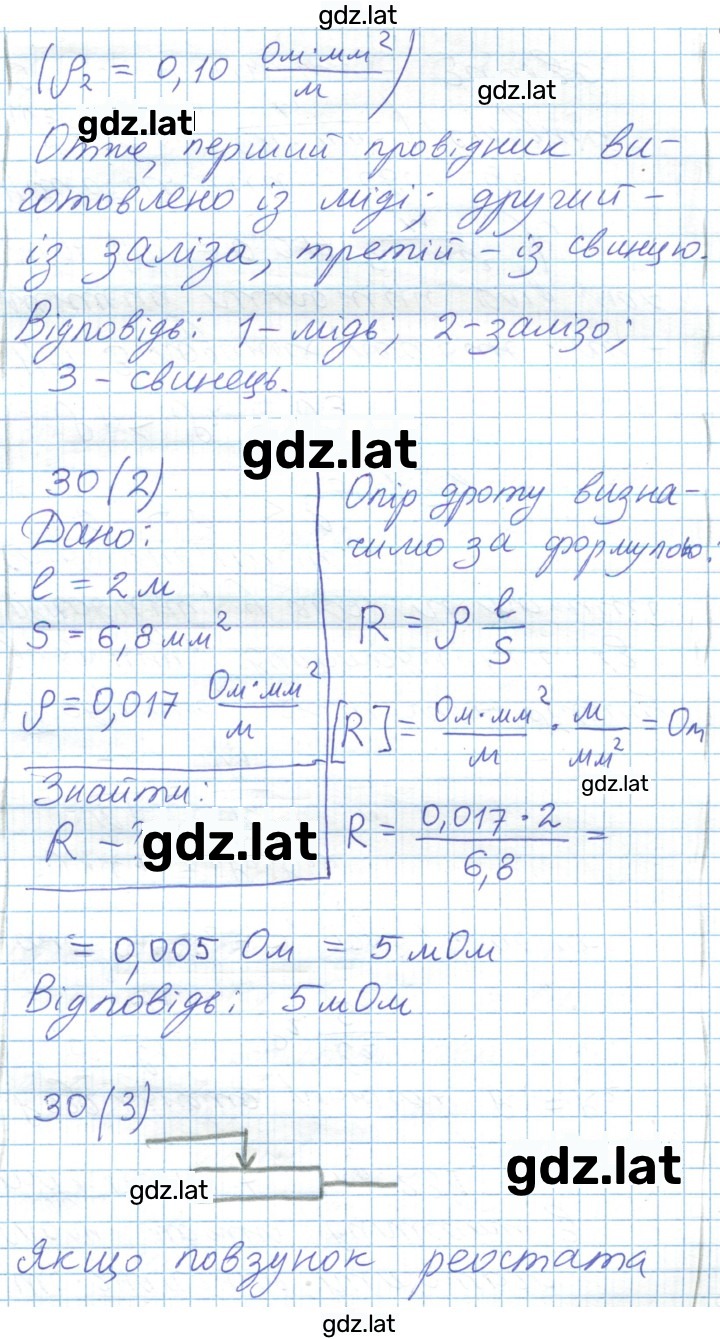 gdz.lat
(ρ₂ = 0,10 Ом·мм²/м)
gdz.lat
gdz.lat
Отже, перший провідник ви-
готовлено із міді; другий -
із заліза, третій - із свинцю.
Відповідь: 1 - мідь; 2 - залізо;
3 - свинець.
gdz.lat
30(2)
Дано:
l = 2 м
S = 6,8 мм²
ρ = 0,017 Ом·мм²/м
Знайти:
R - ?
gdz.lat
Опір дроту визна-
чимо за формулою:
R = ρ l/S
[R] = Ом·мм²/м · м/мм² = Ом
gdz.lat
R = 0,017·2/6,8 =
= 0,005 Ом = 5 мОм
Відповідь: 5 мОм
30(3)
gdz.lat
gdz.lat
Якщо повзунок реостата
gdz.lat